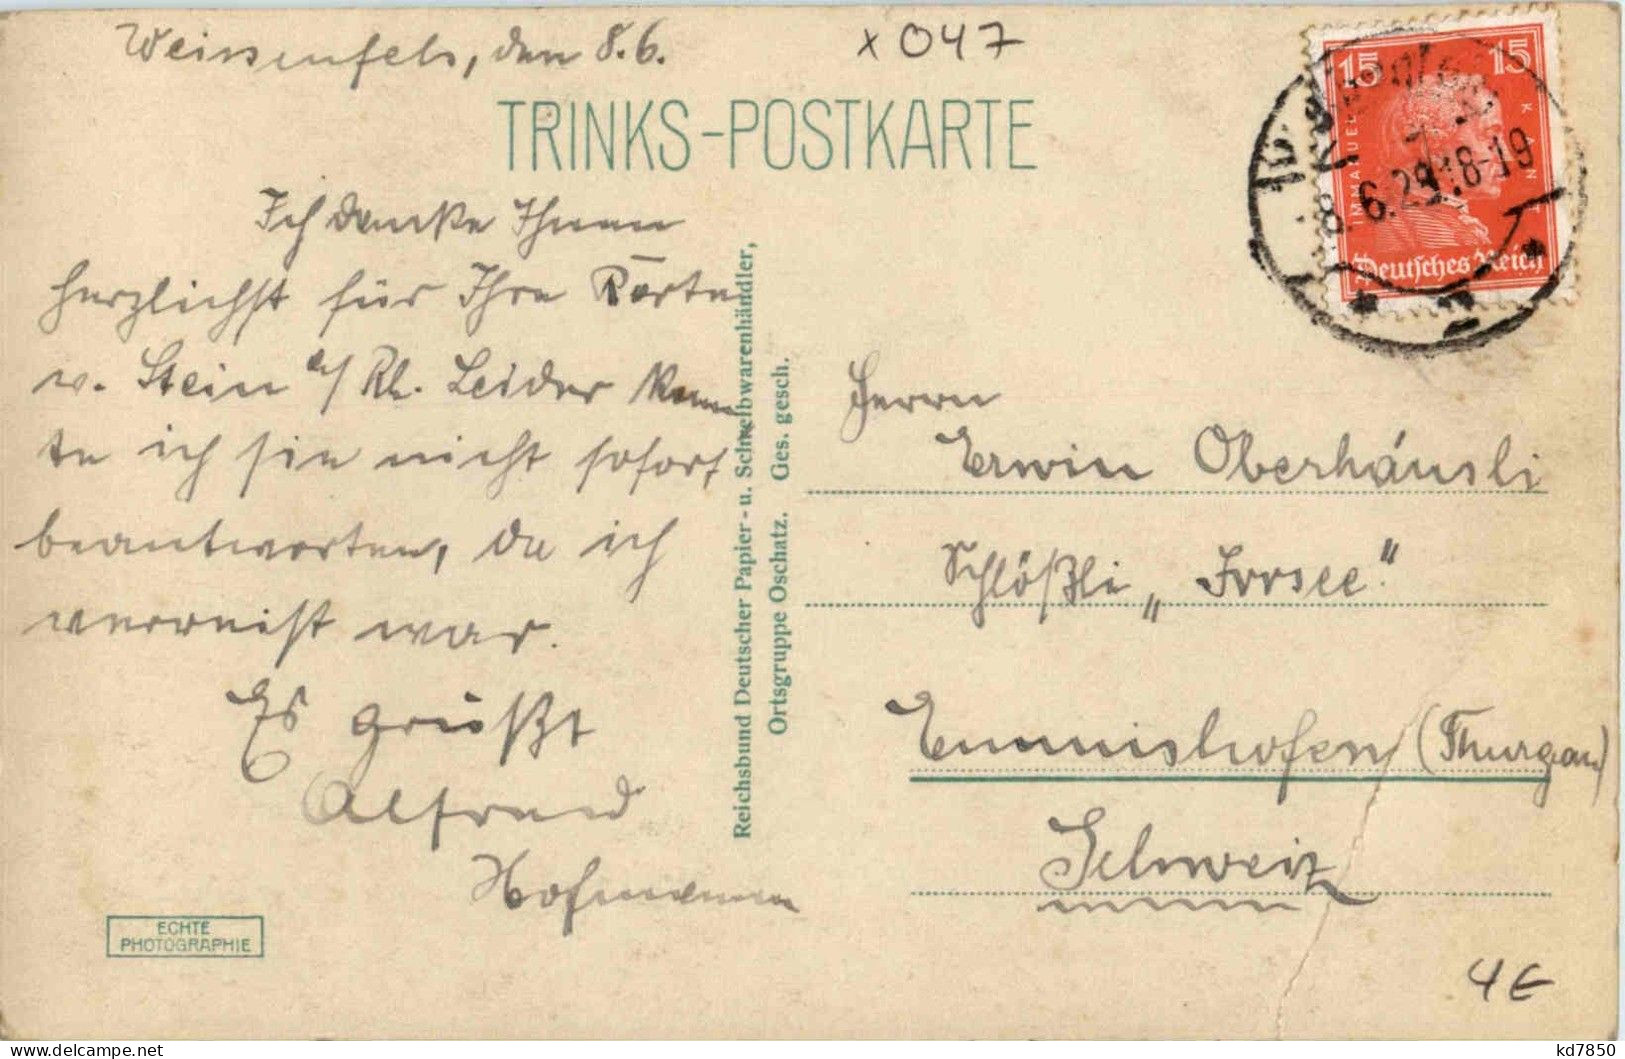 Weissenfels, den 8.6.
x 047
TRINKS-POSTKARTE
Ich danke Ihnen
herzlichst für Ihre Karte
v. Stein a/ Rh. Leider konn
te ich sie nicht sofort
beantworten, da ich
verreist war.
Es grüßt
Alfred
Hofmann
ECHTE
PHOTOGRAPHIE
Reichsbund Deutscher Papier- u. Schreibwarenhändler,
Ortsgruppe Oschatz. Ges. gesch.
15 15
IMMANUEL KANT
8.6.29.18-19
Deutsches Reich
Herrn
Erwin Oberhänsli
Schlößli „Irrsee."
Emmishofen (Thurgau)
Schweiz
4 €
kd7850